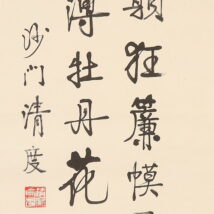 狂簾幙
薄牡丹花
沙门清度